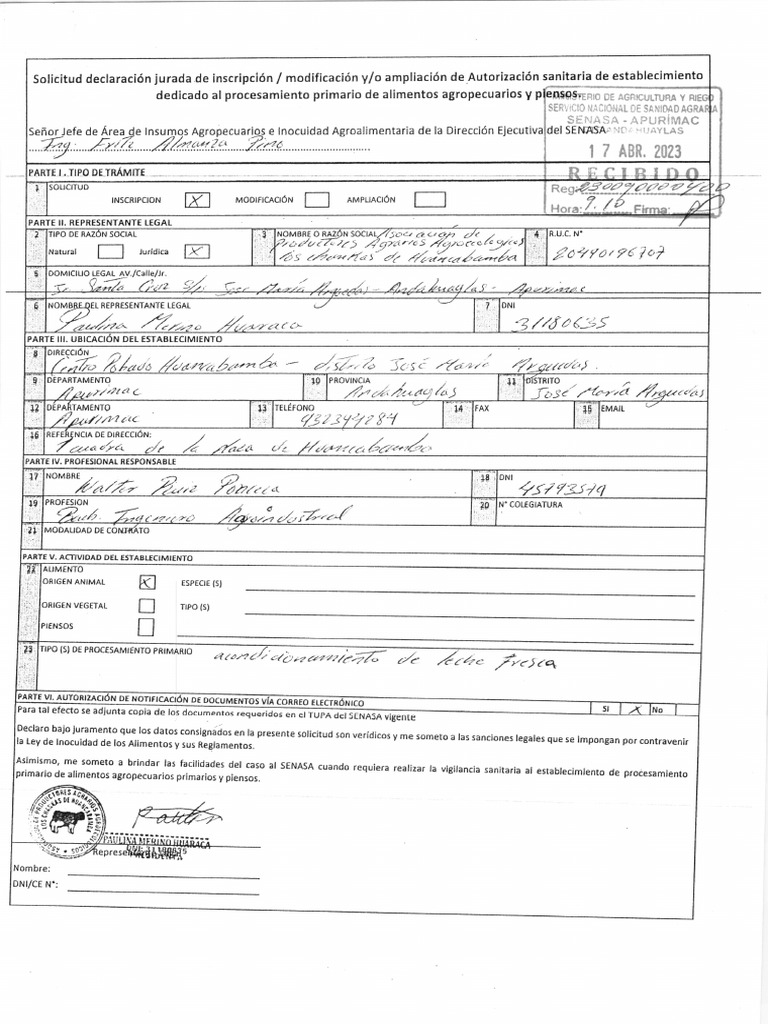 Solicitud declaración jurada de inscripción / modificación y/o ampliación de Autorización sanitaria de establecimiento
dedicado al procesamiento primario de alimentos agropecuarios y piensos.
MINISTERIO DE AGRICULTURA Y RIEGO
SERVICIO NACIONAL DE SANIDAD AGRARIA
SENASA - APURÍMAC
ANDAHUAYLAS
17 ABR. 2023
RECIBIDO
Reg: 230090000400
Hora: 9.10 Firma:
Señor Jefe de Área de Insumos Agropecuarios e Inocuidad Agroalimentaria de la Dirección Ejecutiva del SENASA
Ing. Fritz Almanza Pino
PARTE I . TIPO DE TRÁMITE
1 SOLICITUD
INSCRIPCIÓN X MODIFICACIÓN AMPLIACIÓN
PARTE II. REPRESENTANTE LEGAL
2 TIPO DE RAZÓN SOCIAL
Natural Jurídica X
3 NOMBRE O RAZÓN SOCIAL Asociación de
Productores Agrarios Agroecológicos
Los chankas de Huancabamba
4 R.U.C. N°
20440196707
5 DOMICILIO LEGAL AV./Calle/Jr.
Jr. Santa Cruz S/N José María Arguedas - Andahuaylas - Apurimac
6 NOMBRE DEL REPRESENTANTE LEGAL
Paulina Merino Huaraca
7 DNI
31180635
PARTE III. UBICACIÓN DEL ESTABLECIMIENTO
8 DIRECCIÓN
Centro Poblado Huancabamba - distrito José María Arguedas.
9 DEPARTAMENTO
Apurimac
10 PROVINCIA
Andahuaylas
11 DISTRITO
José María Arguedas
12 DEPARTAMENTO
Apurimac
13 TELÉFONO
932344284
14 FAX
15 EMAIL
16 REFERENCIA DE DIRECCIÓN:
1 cuadra de la plaza de Huancabamba
PARTE IV. PROFESIONAL RESPONSABLE
17 NOMBRE
Walter
18 DNI
45793579
19 PROFESION
Bach. Ingeniero Agroindustrial
20 N° COLEGIATURA
21 MODALIDAD DE CONTRATO
PARTE V. ACTIVIDAD DEL ESTABLECIMIENTO
22 ALIMENTO
ORIGEN ANIMAL X ESPECIE (S)
ORIGEN VEGETAL TIPO (S)
PIENSOS
23 TIPO (S) DE PROCESAMIENTO PRIMARIO acondicionamiento de leche Fresca
PARTE VI. AUTORIZACIÓN DE NOTIFICACIÓN DE DOCUMENTOS VÍA CORREO ELECTRÓNICO
SI X No
Para tal efecto se adjunta copia de los documentos requeridos en el TUPA del SENASA vigente
Declaro bajo juramento que los datos consignados en la presente solicitud son verídicos y me someto a las sanciones legales que se impongan por contravenir
la Ley de Inocuidad de los Alimentos y sus Reglamentos.
Asimismo, me someto a brindar las facilidades del caso al SENASA cuando requiera realizar la vigilancia sanitaria al establecimiento de procesamiento
primario de alimentos agropecuarios primarios y piensos.
PRODUCTORES AGRARIOS
LOS CHANKAS DE HUANCABAMBA
PAULINA MERINO HUARACA
DNI: 31180635
PRESIDENTA
Nombre:
DNI/CE N°: